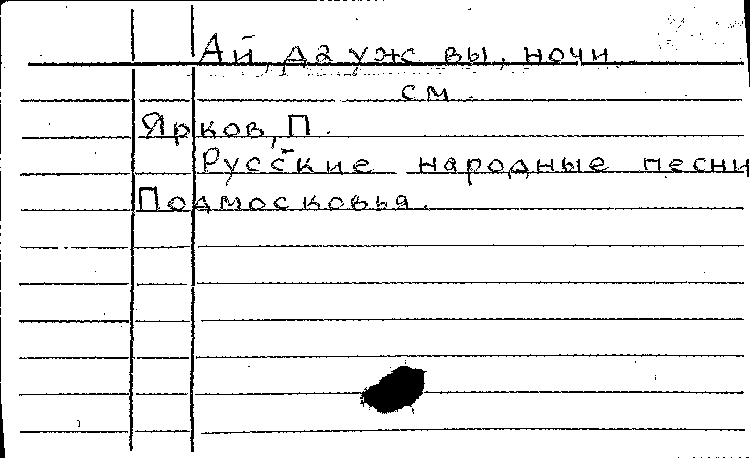 Ай, да уж вы, ночи
см.
Ярков, П.
Русские народные песни
Подмосковья.